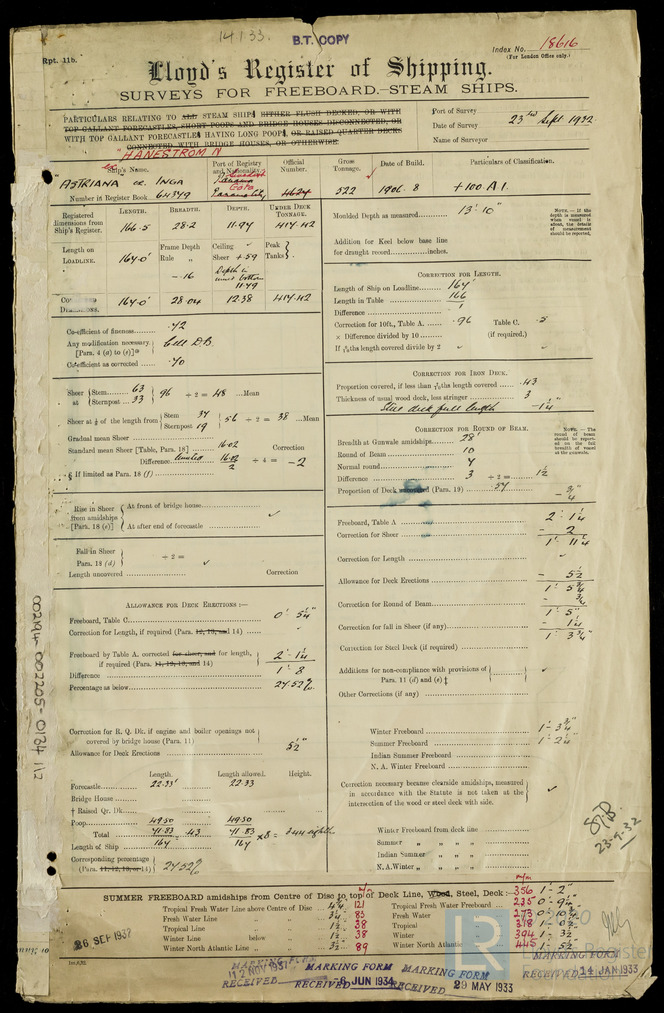 14133.
B.T. COPY
Rpt. 11b.
Index No. 18616
(For London Office only.)
Lloyd's Register of Shipping.
SURVEYS FOR FREEBOARD.—STEAM SHIPS.
PARTICULARS RELATING TO ALL STEAM SHIPS EITHER FLUSH DECKED, OR WITH
TOP GALLANT FORECASTLES, SHORT POOPS AND BRIDGE HOUSES DISCONNECTED, OR
WITH TOP GALLANT FORECASTLES HAVING LONG POOPS, OR RAISED QUARTER DECKS
CONNECTED WITH BRIDGE HOUSES, OR OTHERWISE.
Port of Survey
Date of Survey 23rd Sept 1932
Name of Surveyor
HANESTROM N
Ship's Name. Port of Registry and Nationality. Official Number. Gross Tonnage. Date of Build. Particulars of Classification.
ASTRIANA ex. INGA Panama City 4624 522 1906. 8 +100 A1.
Number in Register Book 64349
Registered dimensions from Ship's Register. LENGTH. BREADTH. DEPTH. UNDER DECK TONNAGE.
166.5 28.2 11.94 414.42
Length on LOADLINE. 164.0' Frame Depth Rule „ — .16 Ceiling Sheer + .59 Peak Tanks
Depth to inner bottom 11.49
DIMENSIONS. 164.0' 28.04 12.38 414.42
Moulded Depth as measured 13' 10"
NOTE.—If the depth is measured when vessel is afloat, the details of measurement should be reported.
Addition for Keel below base line
for draught record inches.
CORRECTION FOR LENGTH.
Length of Ship on Loadline 164'
Length in Table 166
Difference
Correction for 10ft., Table A. .96 Table C. .5
× Difference divided by 10 (if required.)
If 6/10ths length covered divide by 2
Co-efficient of fineness .72
Any modification necessary, [Para. 4 (a) to (e)] Cell D.B.
Co-efficient as corrected .70
Sheer at Stem 63 Sternpost 33 96 ÷ 2 = 48 Mean
Sheer at 1/8 of the length from Stem 37 Sternpost 19 56 ÷ 2 = 38 Mean
Gradual mean Sheer
Standard mean Sheer [Table, Para. 18] 16.02 Correction
Difference 2 ÷ 4 = — 2
§ If limited as Para. 18 (f)
CORRECTION FOR IRON DECK.
Proportion covered, if less than 7/10ths length covered .43
Thickness of usual wood deck, less stringer 3
Steel deck full length — 1¼"
CORRECTION FOR ROUND OF BEAM.
Breadth at Gunwale amidships 28'
Round of Beam 10
Normal round 7
Difference 3 ÷ 2 = 1½
Proportion of Deck uncovered (Para. 19) .57 — ¾"
NOTE.—The round of beam should be reported on the full breadth of vessel at the gunwale.
Rise in Sheer from amidships [Para. 18 (e)] At front of bridge house
At after end of forecastle
Fall in Sheer Para. 18 (d) ÷ 2 =
Length uncovered Correction
Freeboard, Table A 2' 1¼
Correction for Sheer — 2
1' 11¼
Correction for Length
Allowance for Deck Erections — 5½
1' 5¾
Correction for Round of Beam — ¾
1' 5"
Correction for fall in Sheer (if any) — 1¼
1' 3¾"
Correction for Steel Deck (if required)
Additions for non-compliance with provisions of Para. 11 (d) and (e)
Other Corrections (if any)
ALLOWANCE FOR DECK ERECTIONS:—
Freeboard, Table C. 0' 5¼"
Correction for Length, if required (Para. 12, 13, and 14)
Freeboard by Table A. corrected for sheer, and for length, if required (Para. 11, 12, 13, and 14) 2' 1¼
Difference 1' 8
Percentage as below 27.52%
Correction for R. Q. Dk. if engine and boiler openings not covered by bridge house (Para. 11)
Allowance for Deck Erections 5½"
Length. Length allowed. Height.
Forecastle 22.33' 22.33
Bridge House
† Raised Qr. Dk.
Poop 49.50 49.50
Total 71.83 .43 71.83 × 8 = 344 eighths
Length of Ship 164 164
Corresponding percentage (Para. 11, 12, 13, or 14) 27.52%
Winter Freeboard 1' 3¾"
Summer Freeboard 1' 2¼"
Indian Summer Freeboard
N. A. Winter Freeboard
Correction necessary because clearside amidships, measured in accordance with the Statute is not taken at the intersection of the wood or steel deck with side.
Winter Freeboard from deck line
Summer „ „ „
Indian Summer „ „ „
N.A. Winter „ „ „
23-9-32
SUMMER FREEBOARD amidships from Centre of Disc to top of Deck Line, Wood, Steel, Deck:— 356 1' 2"
Tropical Fresh Water Line above Centre of Disc 4¾ 121 Tropical Fresh Water Freeboard 235 0' 9¼"
Fresh Water Line „ 3¼ 83 Fresh Water „ 273 0' 10¾"
Tropical Line „ 1½ 38 Tropical „ 318 0' 12½"
Winter Line below „ 1½ 38 Winter „ 394 1' 3½
Winter North Atlantic Line „ 3½ 89 Winter North Atlantic „ 445 1' 5½
26 SEP 1932
MARKING FORM RECEIVED 12 NOV 1937
MARKING FORM RECEIVED 6 JUN 1934
MARKING FORM RECEIVED 29 MAY 1933
MARKING FORM RECEIVED 14 JAN 1933
002194-002205-0134 1/2
LR
Lloyd's Register